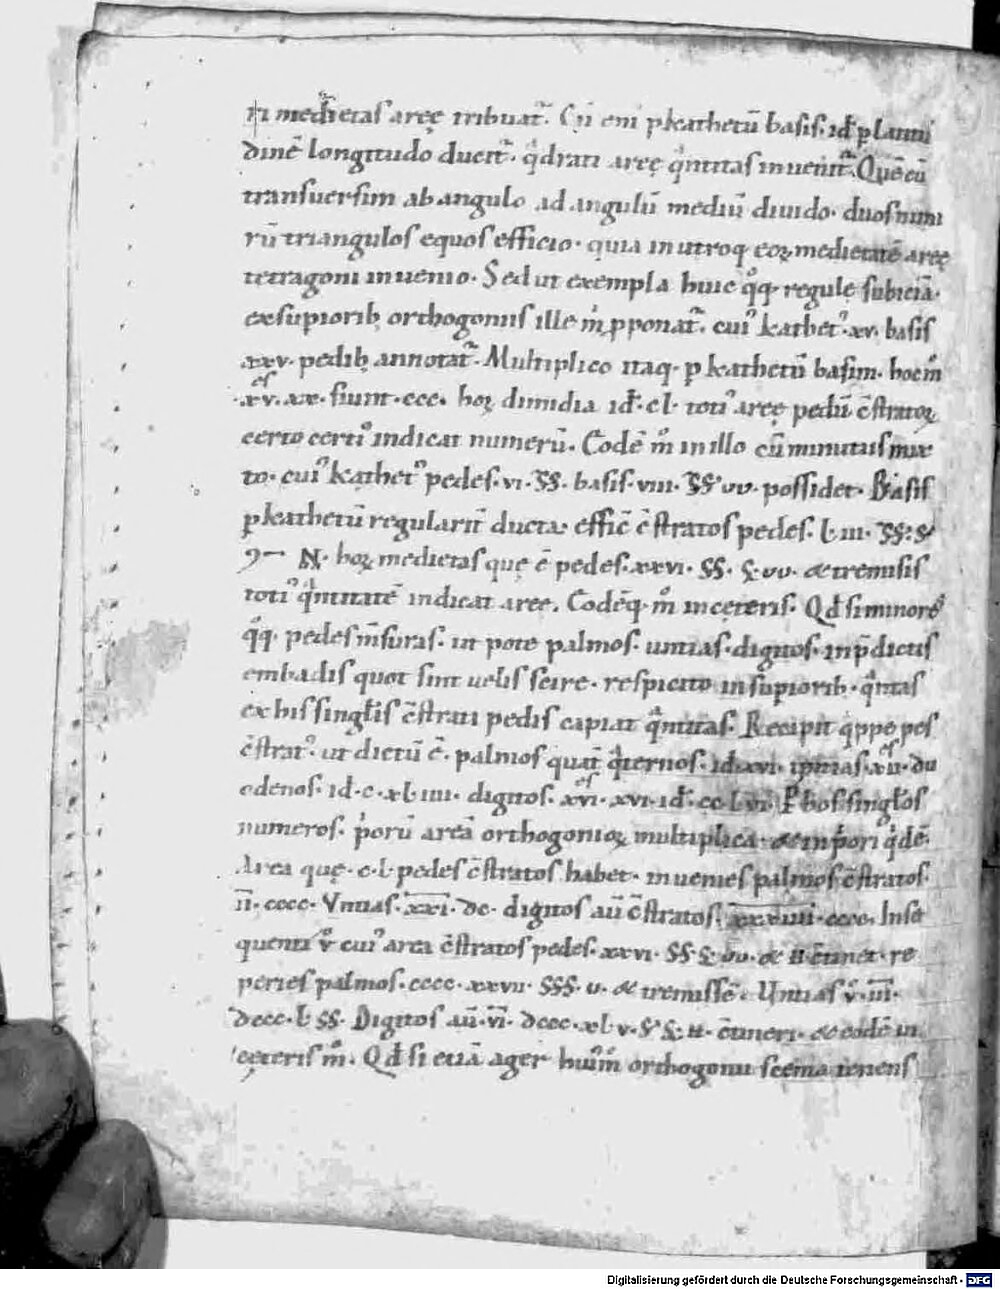 ti medietas aręę tribuat᷑. Cū eni ꝑ kathetū basis. id ꝑ latitu
dinē longitudo ducit᷑. q̇drati aręę q̇ntitas inuenit᷑. Quē cū
transuersim ab angulo ad angulū mediū diuido. duos num
rū triangulos equos efficio. quia in utroq eoꝝ medietatē aręę
tetragoni inuenio. Sed ut exempla huic q̊q regulę subiciā.
ex supiorib; orthogoniis ille m̊ ꝓponat᷑. cui᾿ kathet᾿ xv. basis
xxv. pedib; annotat᷑. Multiplico itaq. ꝑ kathetū basim. hoc m̊
xv. xx. fiunt. ccc. hoꝝ dimidia id. cl. toti᾿ aręę pedū c̄stratoꝝ
certo certi᾿ indicat numerū. Eodē m̊ in illo cū minutiis mix
to. cui᾿ kathet᾿ pedes. vi. SS. basis. viii. possidet. Basis
ꝑ kathetū regularit᷑ ducta. effic̄ c̄stratos pedes. l. iii.
hoꝝ medietas quę ē pedes. xxvi. SS. & tremisis
toti᾿ q̇ntitatē indicat aree. Eodēq m̊ in cęteris. Qd si minores
q̊q. pedes m̄suras. ut pote palmos. untias. digitos. in p̄dictis
embadis quot sint uelis scire. respicito in supiorib. q̇ntas
ex his singlis c̄strati pedis capiat q̇ntitas. Recipit q̇ppe pes
c̄strat᾿. ut dictū ē. palmos quat᷑ q̇ternos. id. xvi. untias. xii. du
odenos. id. c. xl. iiii. digitos. xvi. xvi. id. cc. l. vi. Ꝑ hos singlos
numeros. p̊rū areā orthogonioꝝ multiplica. & in p̊ori q̇dē.
Area quę. c. l. pedes c̄stratos habet. inuenies palmos c̄stratos.
ii. cccc. Vntias. xxi. dc. digitos aū c̄stratos. xxxviii. cccc. In se
quenti v᷑ cui᾿ area c̄stratos pedes. xxvi. SS. & c̄tinet. re
peries palmos. cccc. xxvii. SSS. & tremissē. Untias v. iii.
dccc. l. SS. Digitos aū. vi. dccc. xl. v. c̄tineri. & eodē in
cęteris m̊. Qd si etiā ager hui᾿m̊ orthogonii scema tenens